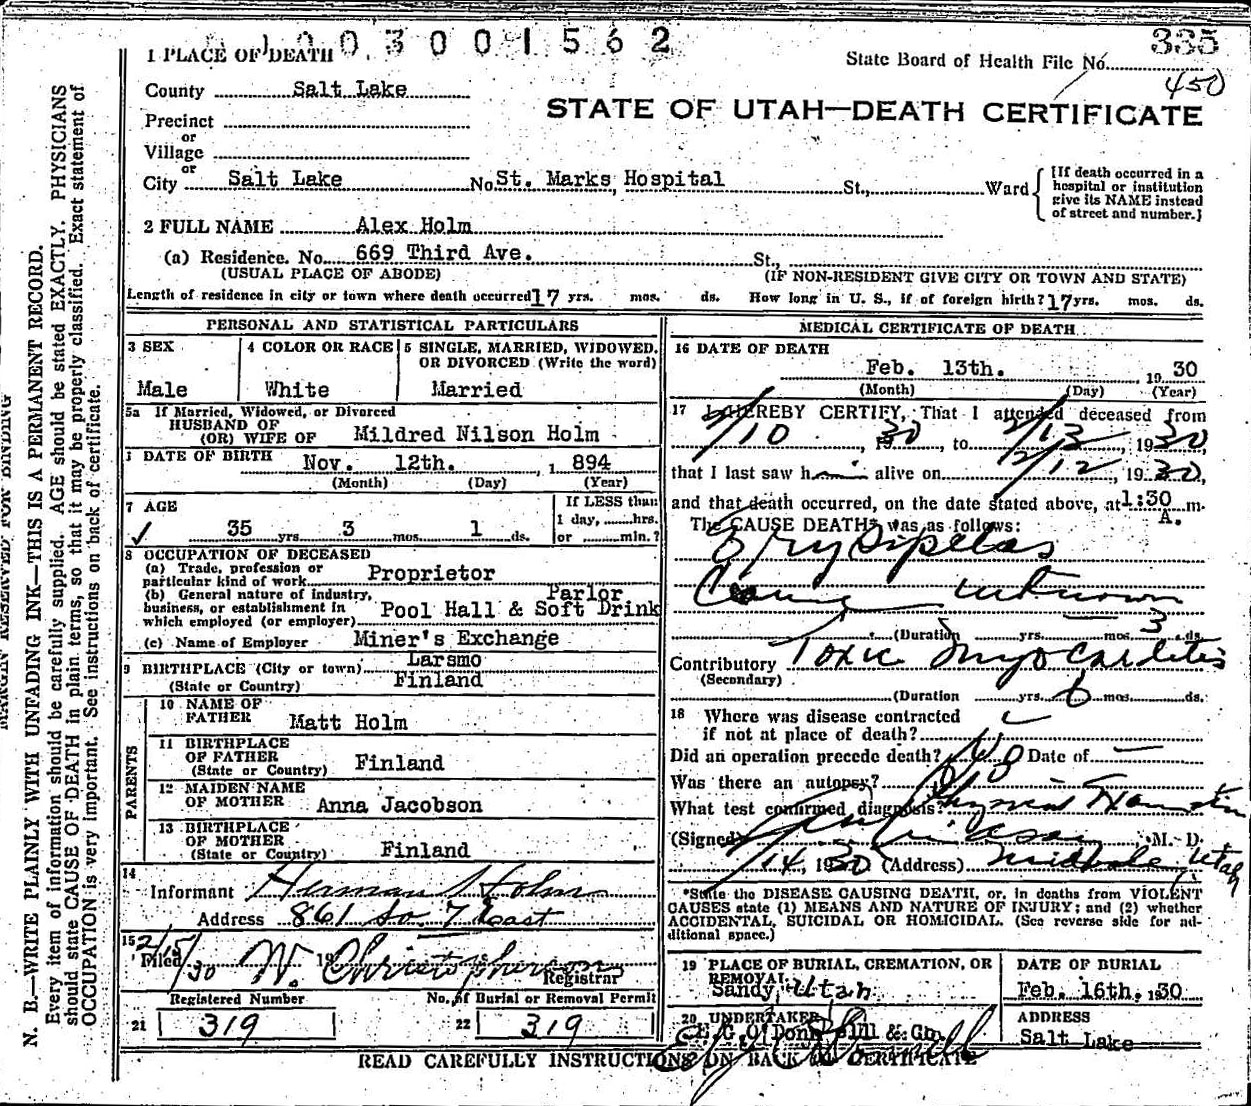 1003001562
335
1 PLACE OF DEATH
State Board of Health File No.
450
County Salt Lake
STATE OF UTAH—DEATH CERTIFICATE
Precinct
or
Village
or
City Salt Lake No. St. Marks Hospital St., Ward
[If death occurred in a
hospital or institution
give its NAME instead
of street and number.]
2 FULL NAME Alex Holm
(a) Residence. No. 669 Third Ave. St.,
(USUAL PLACE OF ABODE) (IF NON-RESIDENT GIVE CITY OR TOWN AND STATE)
Length of residence in city or town where death occurred 17 yrs. mos. ds. How long in U. S., if of foreign birth? 17 yrs. mos. ds.
PERSONAL AND STATISTICAL PARTICULARS
3 SEX 4 COLOR OR RACE 5 SINGLE, MARRIED, WIDOWED,
OR DIVORCED (Write the word)
Male White Married
5a If Married, Widowed, or Divorced
HUSBAND OF
(OR) WIFE OF Mildred Nilson Holm
DATE OF BIRTH Nov. 12th. 1894
(Month) (Day) (Year)
7 AGE If LESS than
1 day, hrs.
35 yrs. 3 mos. 1 ds. or min.?
8 OCCUPATION OF DECEASED
(a) Trade, profession or
particular kind of work Proprietor
(b) General nature of industry, Parlor
business, or establishment in
which employed (or employer) Pool Hall & Soft Drink
(c) Name of Employer Miner's Exchange
9 BIRTHPLACE (City or town) Larsmo
(State or Country) Finland
PARENTS
10 NAME OF
FATHER Matt Holm
11 BIRTHPLACE
OF FATHER
(State or Country) Finland
12 MAIDEN NAME
OF MOTHER Anna Jacobson
13 BIRTHPLACE
OF MOTHER
(State or Country) Finland
14
Informant Herman Holm
Address 861 So 7 East
15 2/15/30
Filed 19
W. Christopherson
Registrar
Registered Number No. of Burial or Removal Permit
21 319 22 319
MEDICAL CERTIFICATE OF DEATH
16 DATE OF DEATH
Feb. 13th. 1930
(Month) (Day) (Year)
17 I HEREBY CERTIFY, That I attended deceased from
2/10 1930, to 2/13, 1930,
that I last saw him alive on 2/12, 1930,
and that death occurred, on the date stated above, at 1:30 m.
A.
The CAUSE DEATH* was as follows:
Erysipelas
Cause unknown
(Duration yrs. mos. 3 ds.
Contributory Toxic Myocarditis
(Secondary)
(Duration yrs. 6 mos. ds.
18 Where was disease contracted
if not at place of death?
Did an operation precede death? No Date of
Was there an autopsy? No
What test confirmed diagnosis? Physical Examination
(Signed) M. D.
2/14, 1930 (Address) Midvale Utah
*State the DISEASE CAUSING DEATH, or, in deaths from VIOLENT
CAUSES state (1) MEANS AND NATURE OF INJURY; and (2) whether
ACCIDENTAL, SUICIDAL OR HOMICIDAL. (See reverse side for ad-
ditional space.)
19 PLACE OF BURIAL, CREMATION, OR
REMOVAL
Sandy, Utah
DATE OF BURIAL
Feb. 16th. 1930
20 UNDERTAKER
E. G. O'Donnell & Co.
ADDRESS
Salt Lake
READ CAREFULLY INSTRUCTIONS ON BACK OF CERTIFICATE
MARGIN RESERVED FOR BINDING
N. B.—WRITE PLAINLY WITH UNFADING INK—THIS IS A PERMANENT RECORD.
Every item of information should be carefully supplied. AGE should be stated EXACTLY. PHYSICIANS
should state CAUSE OF DEATH in plain terms, so that it may be properly classified. Exact statement of
OCCUPATION is very important. See instructions on back of certificate.